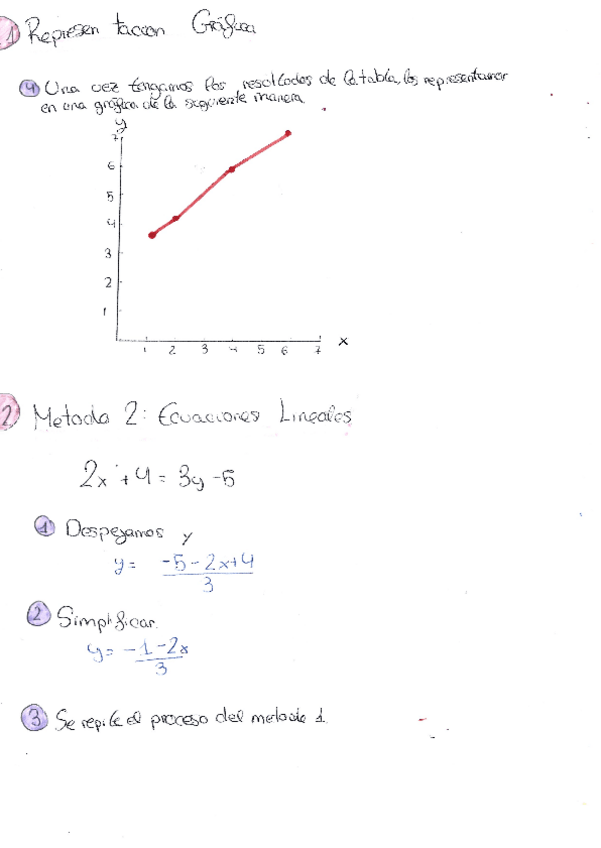 1 Representacion Gráfica
4 Una vez tengamos los resultados de la tabla, los representamos
en una gráfica de la siguiente manera
y
7
6
5
4
3
2
1
1 2 3 4 5 6 7 x
2 Metodo 2: Ecuaciones Lineales
2x + 4 = 3y - 5
1 Despejamos y
y = -5 - 2x + 4
3
2 Simplificar.
y = -1 - 2x
3
3 Se repite el proceso del metodo 1.